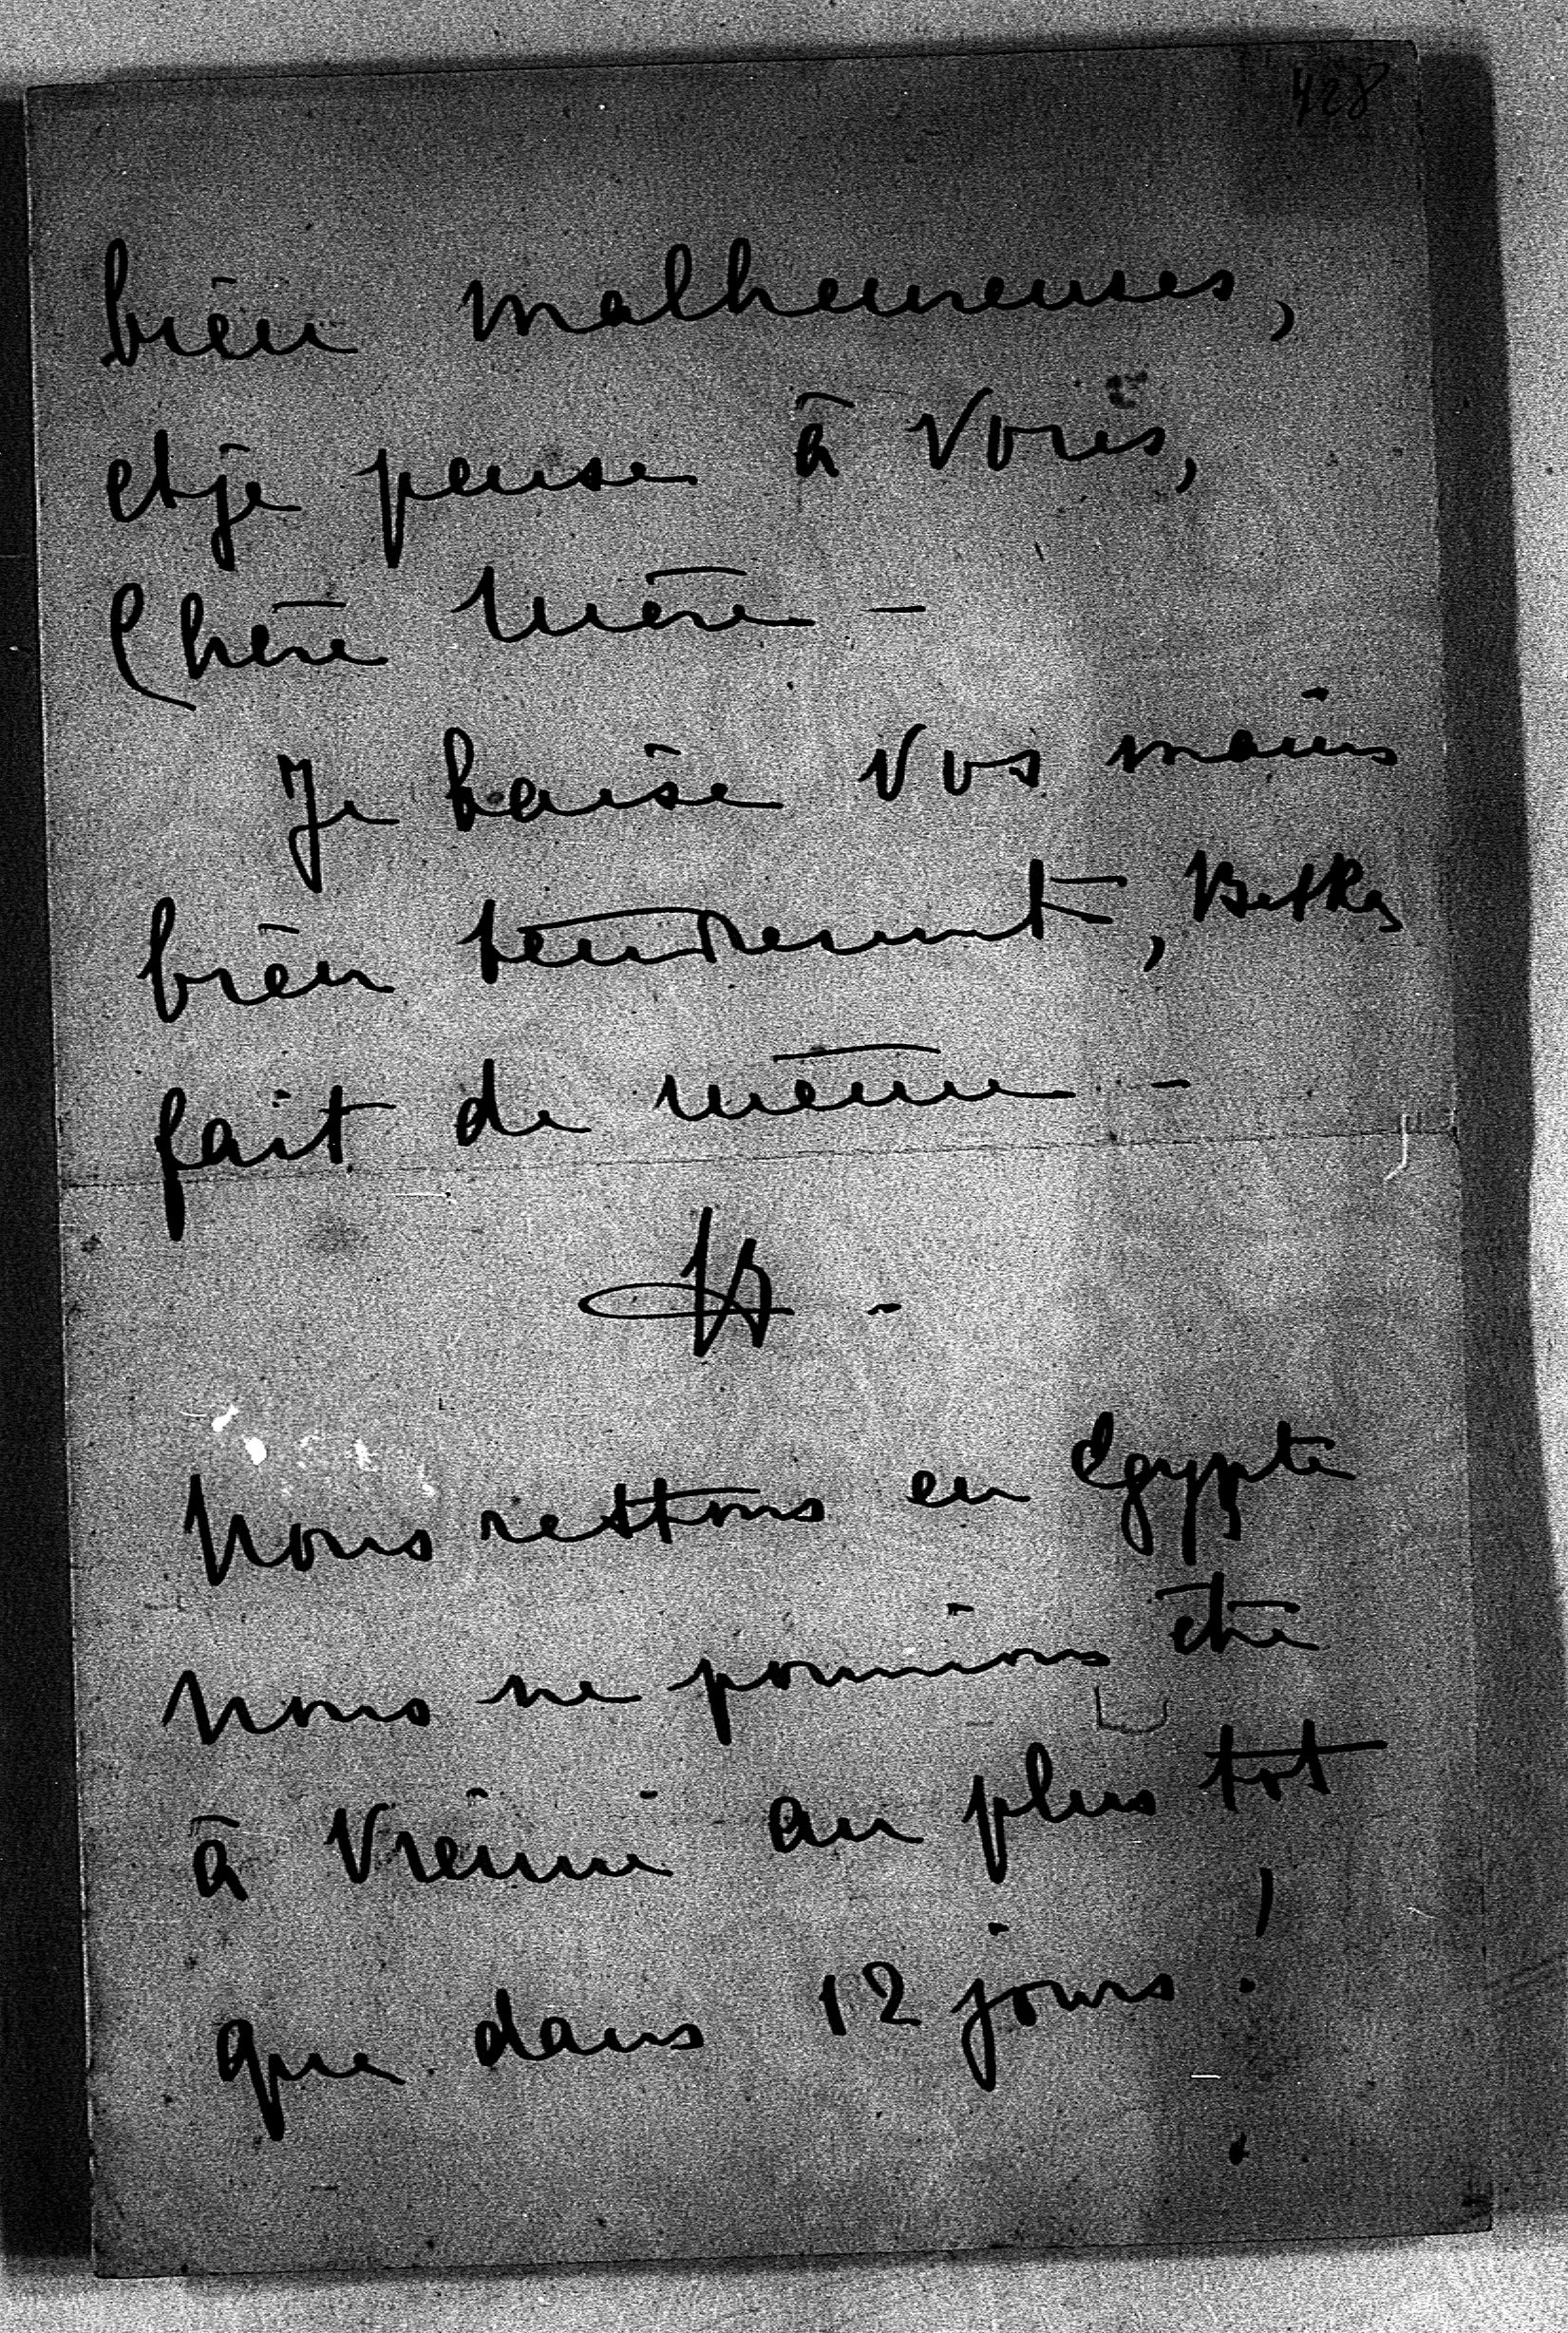 428
bien malheureuses,
et je pense à Vous,
Chère Mère –
Je baise Vos mains
bien tendrement, Betka
fait de même –
Nous restons en Egypte
nous ne pourrions être
à Vienne au plus tot
que dans 12 jours !